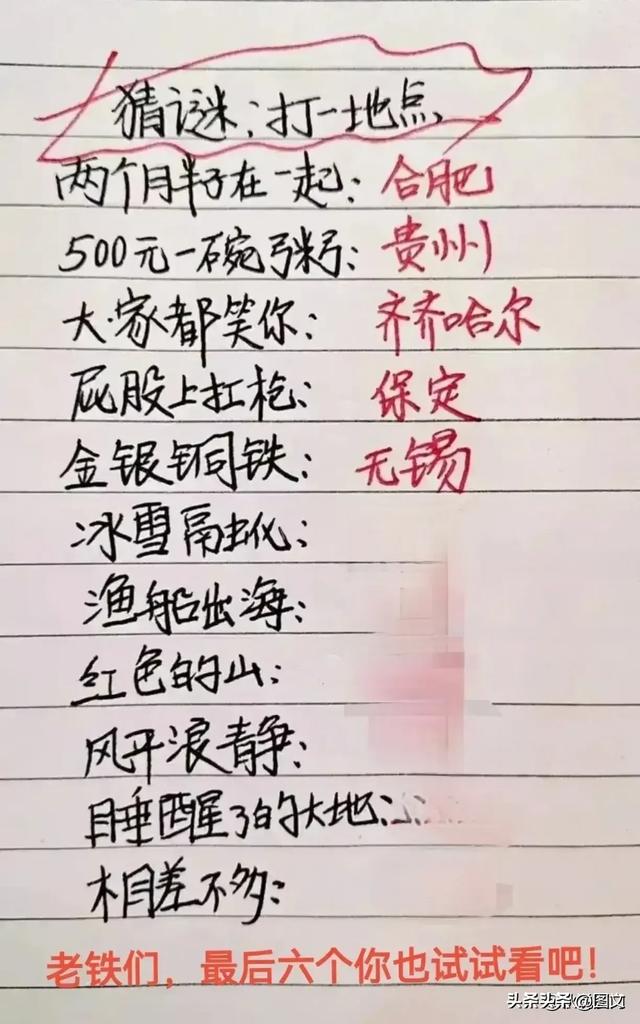 猜谜：打一地点
两个胖子在一起：合肥
500元一碗粥：贵州
大家都笑你：齐齐哈尔
屁股上扛枪：保定
金银铜铁：无锡
冰雪融化：
渔船出海：
红色的山：
风平浪静：
睡醒了的大地：
相差不多：
老铁们，最后六个你也试试看吧！
头条 @图文